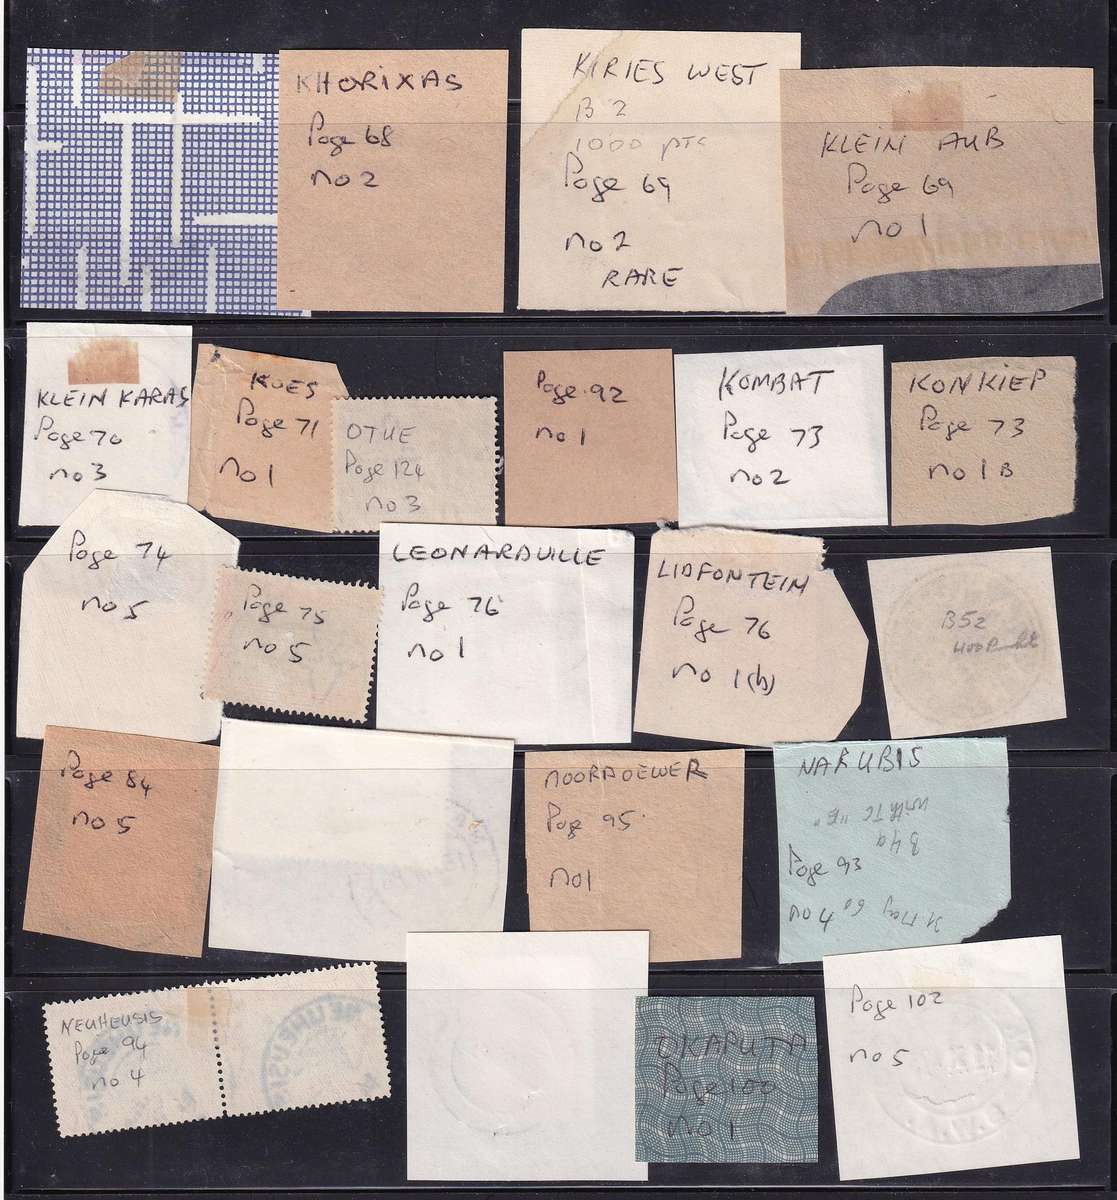 KHORIXAS
Page 68
no 2
KIRIES WEST
B 2
1000 pts
Page 69
no 2
RARE
KLEIN AUB
Page 69
no 1
KLEIN KARAS
Page 70
no 3
KOES
Page 71
no 1
OTHE
Page 124
no 3
Page 92
no 1
KOMBAT
Page 73
no 2
KONKIEP
Page 73
no 1 B
Page 74
no 5
Page 75
no 5
LEONARDVILLE
Page 76
no 1
LIDFONTEIN
Page 76
no 1(b)
B52
400 Punkt
Page 84
no 5
NOORDOEWER
Page 95
no 1
NARUBIS
with TC "E"
B4a
Page 93
no 4
31 May 60
NEUHEUSIS
Page 94
no 4
OKAPUTA
Page 100
no 1
Page 102
no 5